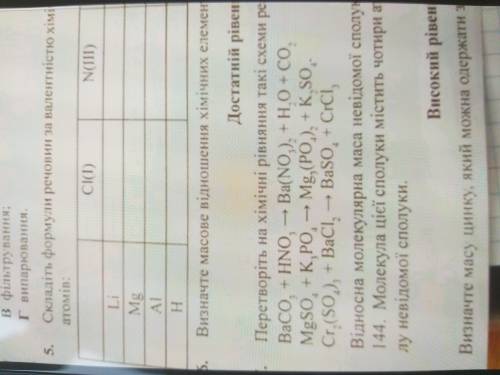 В фільтрування;
Г випарювання.
5. Складіть формули речовин за валентністю хімі
атомів:
Cl(I) N(III)
Li
Mg
Al
H
Визначте масове відношення хімічних елемен
Достатній рівен
Перетворіть на хімічні рівняння такі схеми ре
BaCO₃ + HNO₃ → Ba(NO₃)₂ + H₂O + CO₂
MgSO₄ + K₃PO₄ → Mg₃(PO₄)₂ + K₂SO₄
Cr₂(SO₄)₃ + BaCl₂ → BaSO₄ + CrCl₃
Відносна молекулярна маса невідомої сполук
144. Молекула цієї сполуки містить чотири ат
лу невідомої сполуки.
Високий рівен
Визначте масу цинку, який можна одержати з